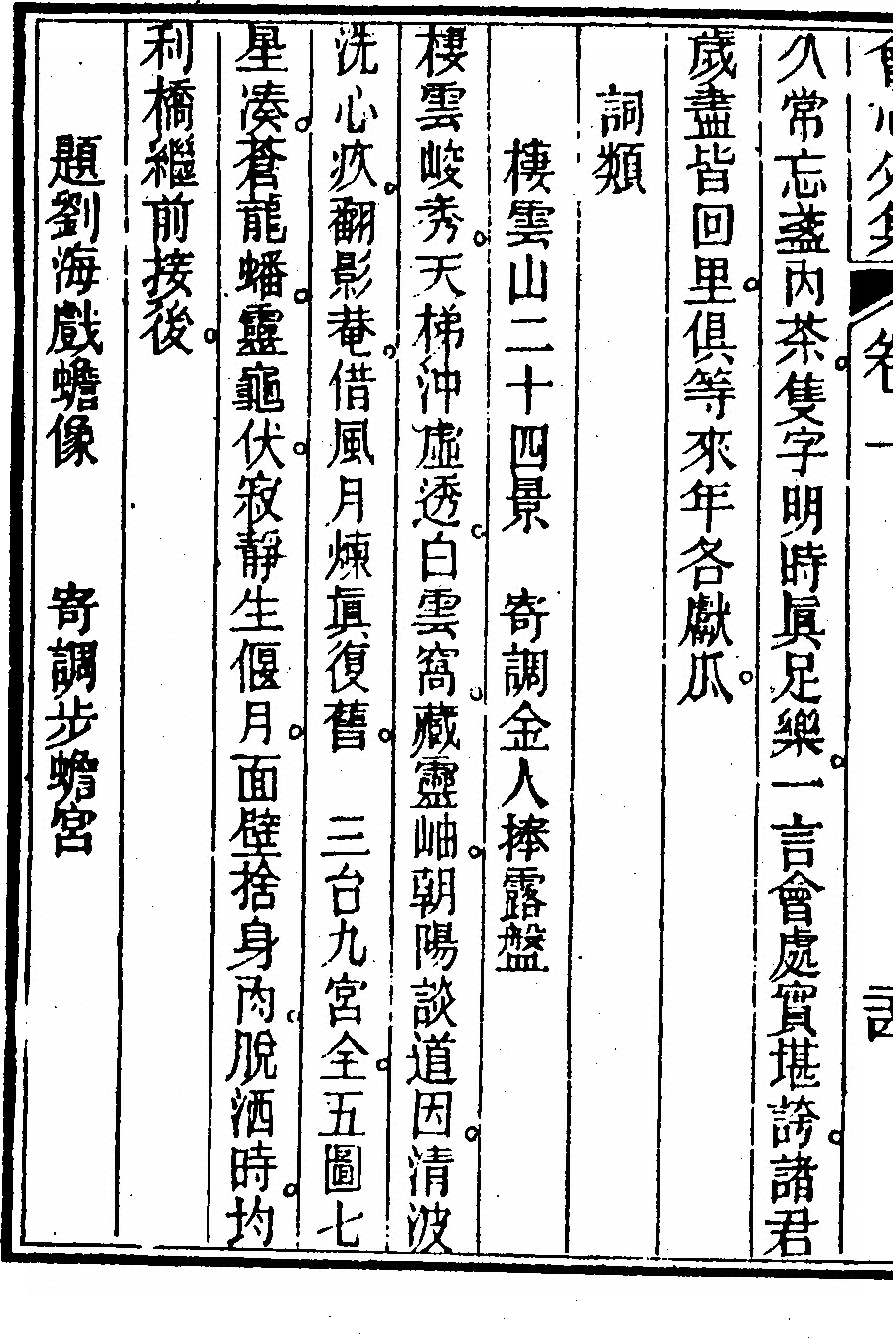 會心外集 卷一 詞
久常忘盞內茶。隻字明時眞足樂。一言會處實堪誇。諸君
歲盡皆回里。俱等來年各獻瓜。
詞類
棲雲山二十四景 寄調金人捧露盤
棲雲峻秀。天梯沖虛透。白雲窩。藏靈岫。朝陽談道因。清波
洗心疚。翻影菴。借風月煉眞復舊。 三台九宮全。五圖七
星湊。蒼龍蟠。靈龜伏。寂靜生偃月。面壁捨身內。脫洒時。均
利橋繼前接後。
題劉海戲蟾像 寄調步蟾宮